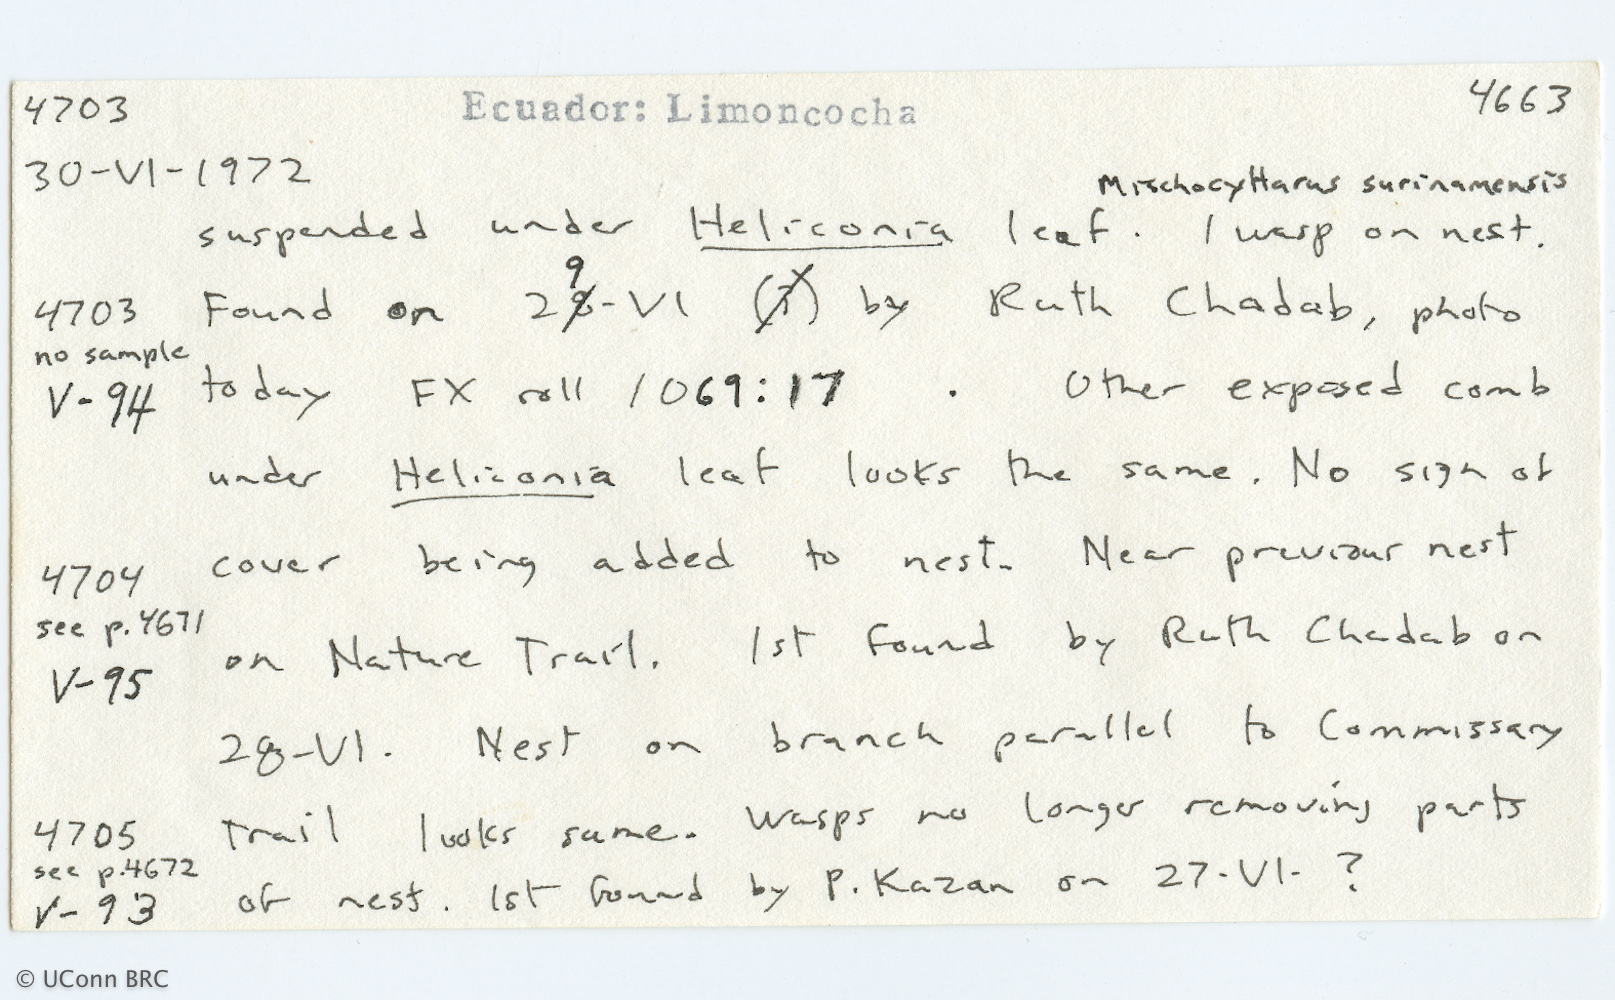 4703 Ecuador: Limoncocha 4663
30-VI-1972
Mischocyttarus surinamensis
suspended under Heliconia leaf. 1 wasp on nest.
4703 Found on 29-VI by Ruth Chadab, photo
no sample
V-94 today FX roll 1069:17 . Other exposed comb
under Heliconia leaf looks the same. No sign of
4704 cover being added to nest. Near previous nest
see p.4671
V-95 on Nature Trail. 1st found by Ruth Chadab on
28-VI. Nest on branch parallel to Commissary
4705 Trail looks same. Wasps no longer removing parts
see p.4672
V-93 of nest. 1st found by P. Kazan on 27-VI- ?
© UConn BRC